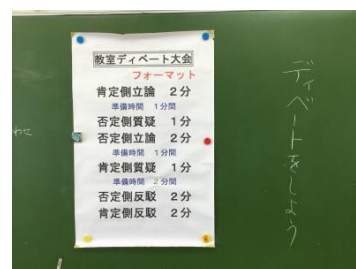 教室ディベート大会
フォーマット
肯定側立論 2分
準備時間 1分間
否定側質疑 1分
否定側立論 2分
準備時間 1分間
肯定側質疑 1分
準備時間 2分間
否定側反駁 2分
肯定側反駁 2分
ディベートをしよう